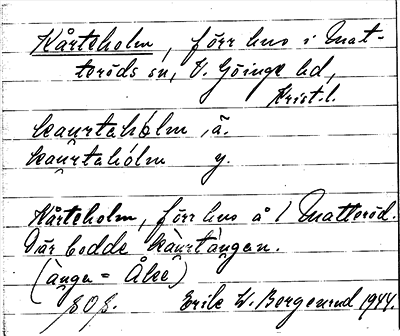 Kårteholm, förr hus i Mat-
teröds sn, V. Göinge hd,
Krist. l.
kau̯rtahólm ä.
kau̯rtahólm y.
Kårteholm, förr hus å 1 Matteröd.
Där bodde kàu̯rtàngen.
(ànga = Åke)
Erik W. Borgenrud 1944.